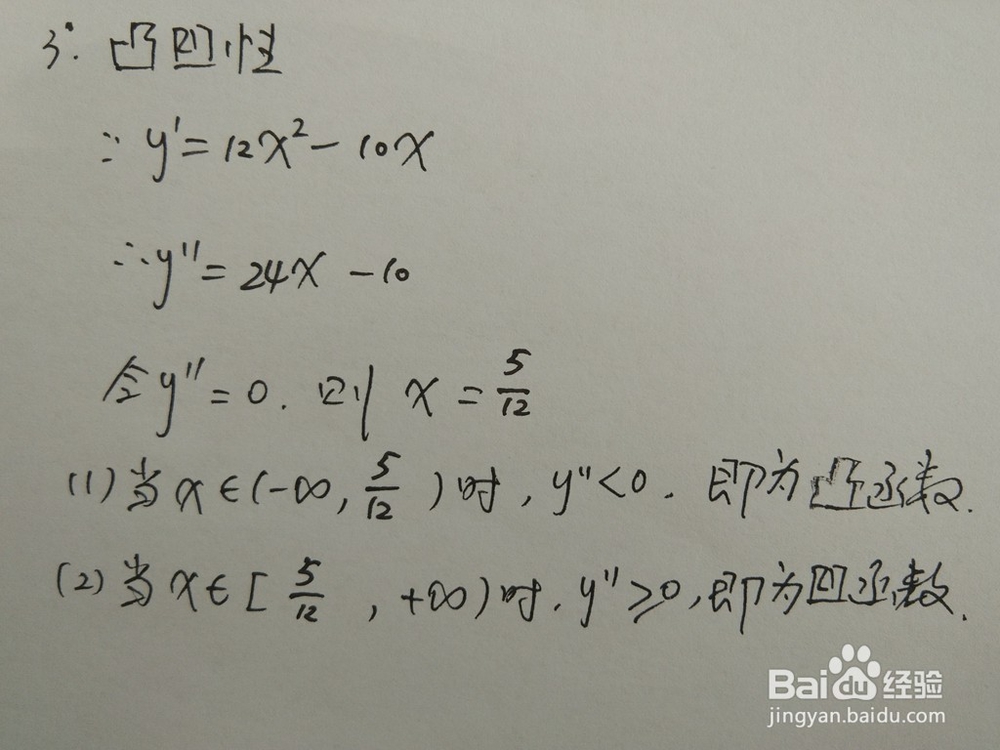 3°. 凸凹性
∵ y' = 12x² - 10x
∴ y'' = 24x - 10
令y'' = 0. 则 x = 5/12
(1) 当 x ∈ (-∞, 5/12) 时, y'' < 0. 即为凸函数.
(2) 当 x ∈ [5/12, +∞) 时. y'' ≥ 0, 即为凹函数.
Baidu 经验
jingyan.baidu.com